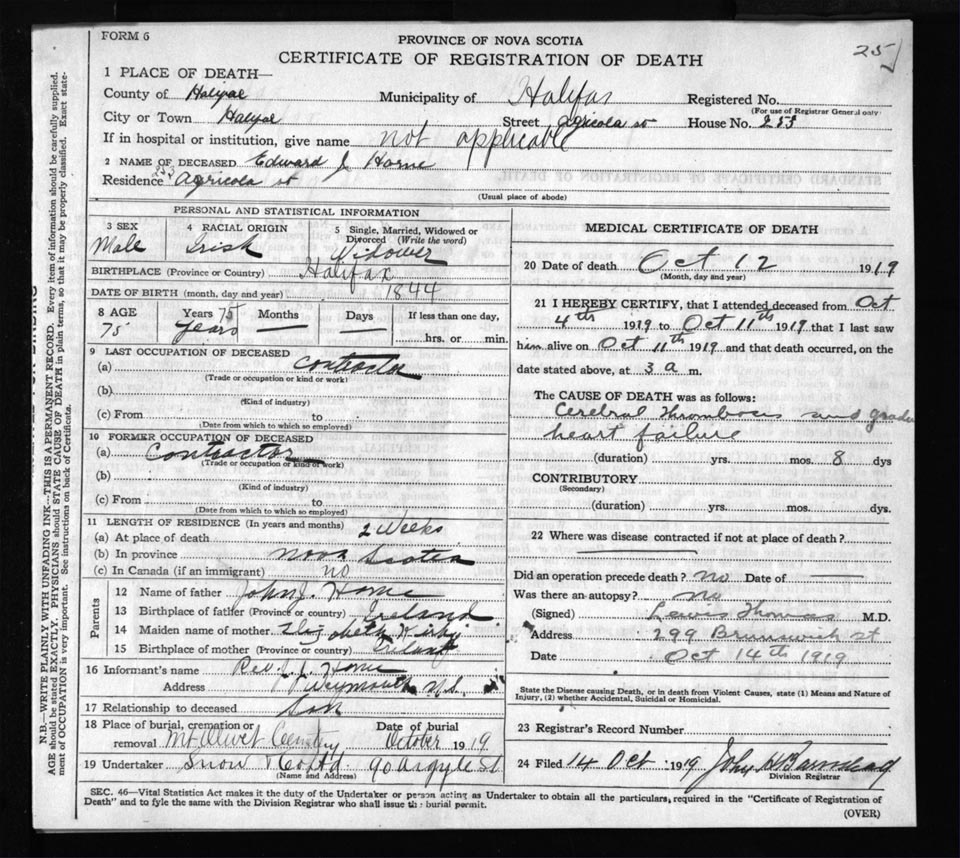 FORM 6
25
PROVINCE OF NOVA SCOTIA
CERTIFICATE OF REGISTRATION OF DEATH
1 PLACE OF DEATH—
County of Halifax Municipality of Halifax Registered No.
(For use of Registrar General only)
City or Town Halifax Street Agricola st House No. 253
If in hospital or institution, give name not applicable
2 NAME OF DECEASED Edward J Horne
Residence Agricola st
(Usual place of abode)
PERSONAL AND STATISTICAL INFORMATION
3 SEX 4 RACIAL ORIGIN 5 Single, Married, Widowed or Divorced (Write the word)
Male Irish Widower
BIRTHPLACE (Province or Country) Halifax
DATE OF BIRTH (month, day and year) 1844
8 AGE Years 75 Months Days If less than one day,
75 years — — hrs. or min.
9 LAST OCCUPATION OF DECEASED
(a) Contractor
(Trade or occupation or kind or work)
(b)
(Kind of industry)
(c) From to
(Date from which to which so employed)
10 FORMER OCCUPATION OF DECEASED
(a) Contractor
(Trade or occupation or kind of work)
(b)
(Kind of industry)
(c) From to
(Date from which to which so employed)
11 LENGTH OF RESIDENCE (In years and months)
(a) At place of death 2 weeks
(b) In province Nova Scotia
(c) In Canada (if an immigrant) no
Parents
12 Name of father John J. Horne
13 Birthplace of father (Province or country) Ireland
14 Maiden name of mother Elizabeth
15 Birthplace of mother (Province or country) Ireland
16 Informant's name Rev. J. J. Horne
Address Weymouth N.S.
17 Relationship to deceased Son
18 Place of burial, cremation or removal Mt Olivet Cemetery Date of burial October 1919
19 Undertaker Snow & Co Ltd 90 Argyle St
(Name and Address)
MEDICAL CERTIFICATE OF DEATH
20 Date of death Oct 12 1919
(Month, day and year)
21 I HEREBY CERTIFY, that I attended deceased from Oct
4th 1919 to Oct 11th 1919 that I last saw
him alive on Oct 11th 1919 and that death occurred, on the
date stated above, at 3 a m.
The CAUSE OF DEATH was as follows:
Cerebral Thrombosis and
heart failure
(duration) yrs. mos. 8 dys
CONTRIBUTORY
(Secondary)
(duration) yrs. mos. dys.
22 Where was disease contracted if not at place of death?
Did an operation precede death? no Date of —
Was there an autopsy? no
(Signed) Lewis Thomas M.D.
Address 299 Brunswick st
Date Oct 14th 1919
State the Disease causing Death, or in death from Violent Causes, state (1) Means and Nature of
Injury, (2) whether Accidental, Suicidal or Homicidal.
23 Registrar's Record Number
24 Filed 14 Oct 1919 John H Barnstead
Division Registrar
SEC. 46—Vital Statistics Act makes it the duty of the Undertaker or person acting as Undertaker to obtain all the particulars required in the "Certificate of Registration of
Death" and to fyle the same with the Division Registrar who shall issue the burial permit.
(OVER)
N.B.—WRITE PLAINLY WITH UNFADING INK—THIS IS A PERMANENT RECORD. Every item of information should be carefully supplied.
AGE should be stated EXACTLY. PHYSICIANS should STATE CAUSE OF DEATH in plain terms, so that it may be properly classified. Exact state-
ment of OCCUPATION is very important. See instructions on back of Certificate.